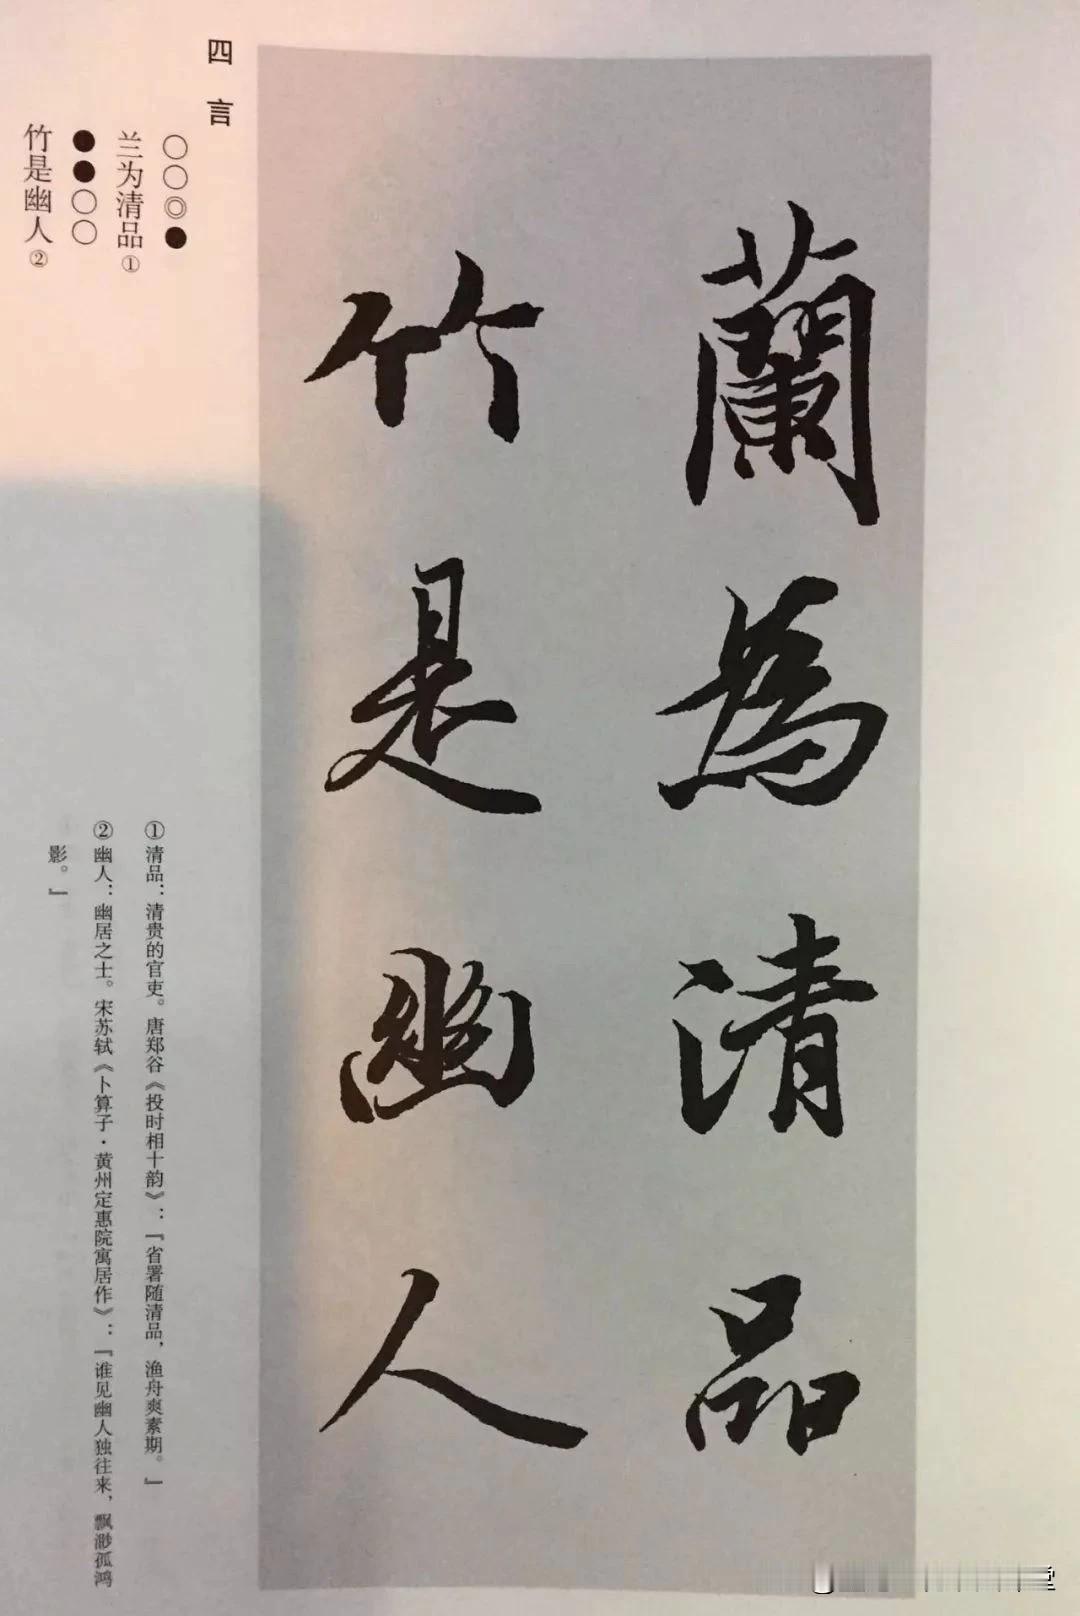 蘭為清品
竹是幽人
四言
○○◎●
兰为清品①
●●○○
竹是幽人②
①清品：清贵的官吏。唐郑谷《投时相十韵》：『省署随清品，渔舟爽素期。』
②幽人：幽居之士。宋苏轼《卜算子·黄州定惠院寓居作》：『谁见幽人独往来，飘渺孤鸿
影。』